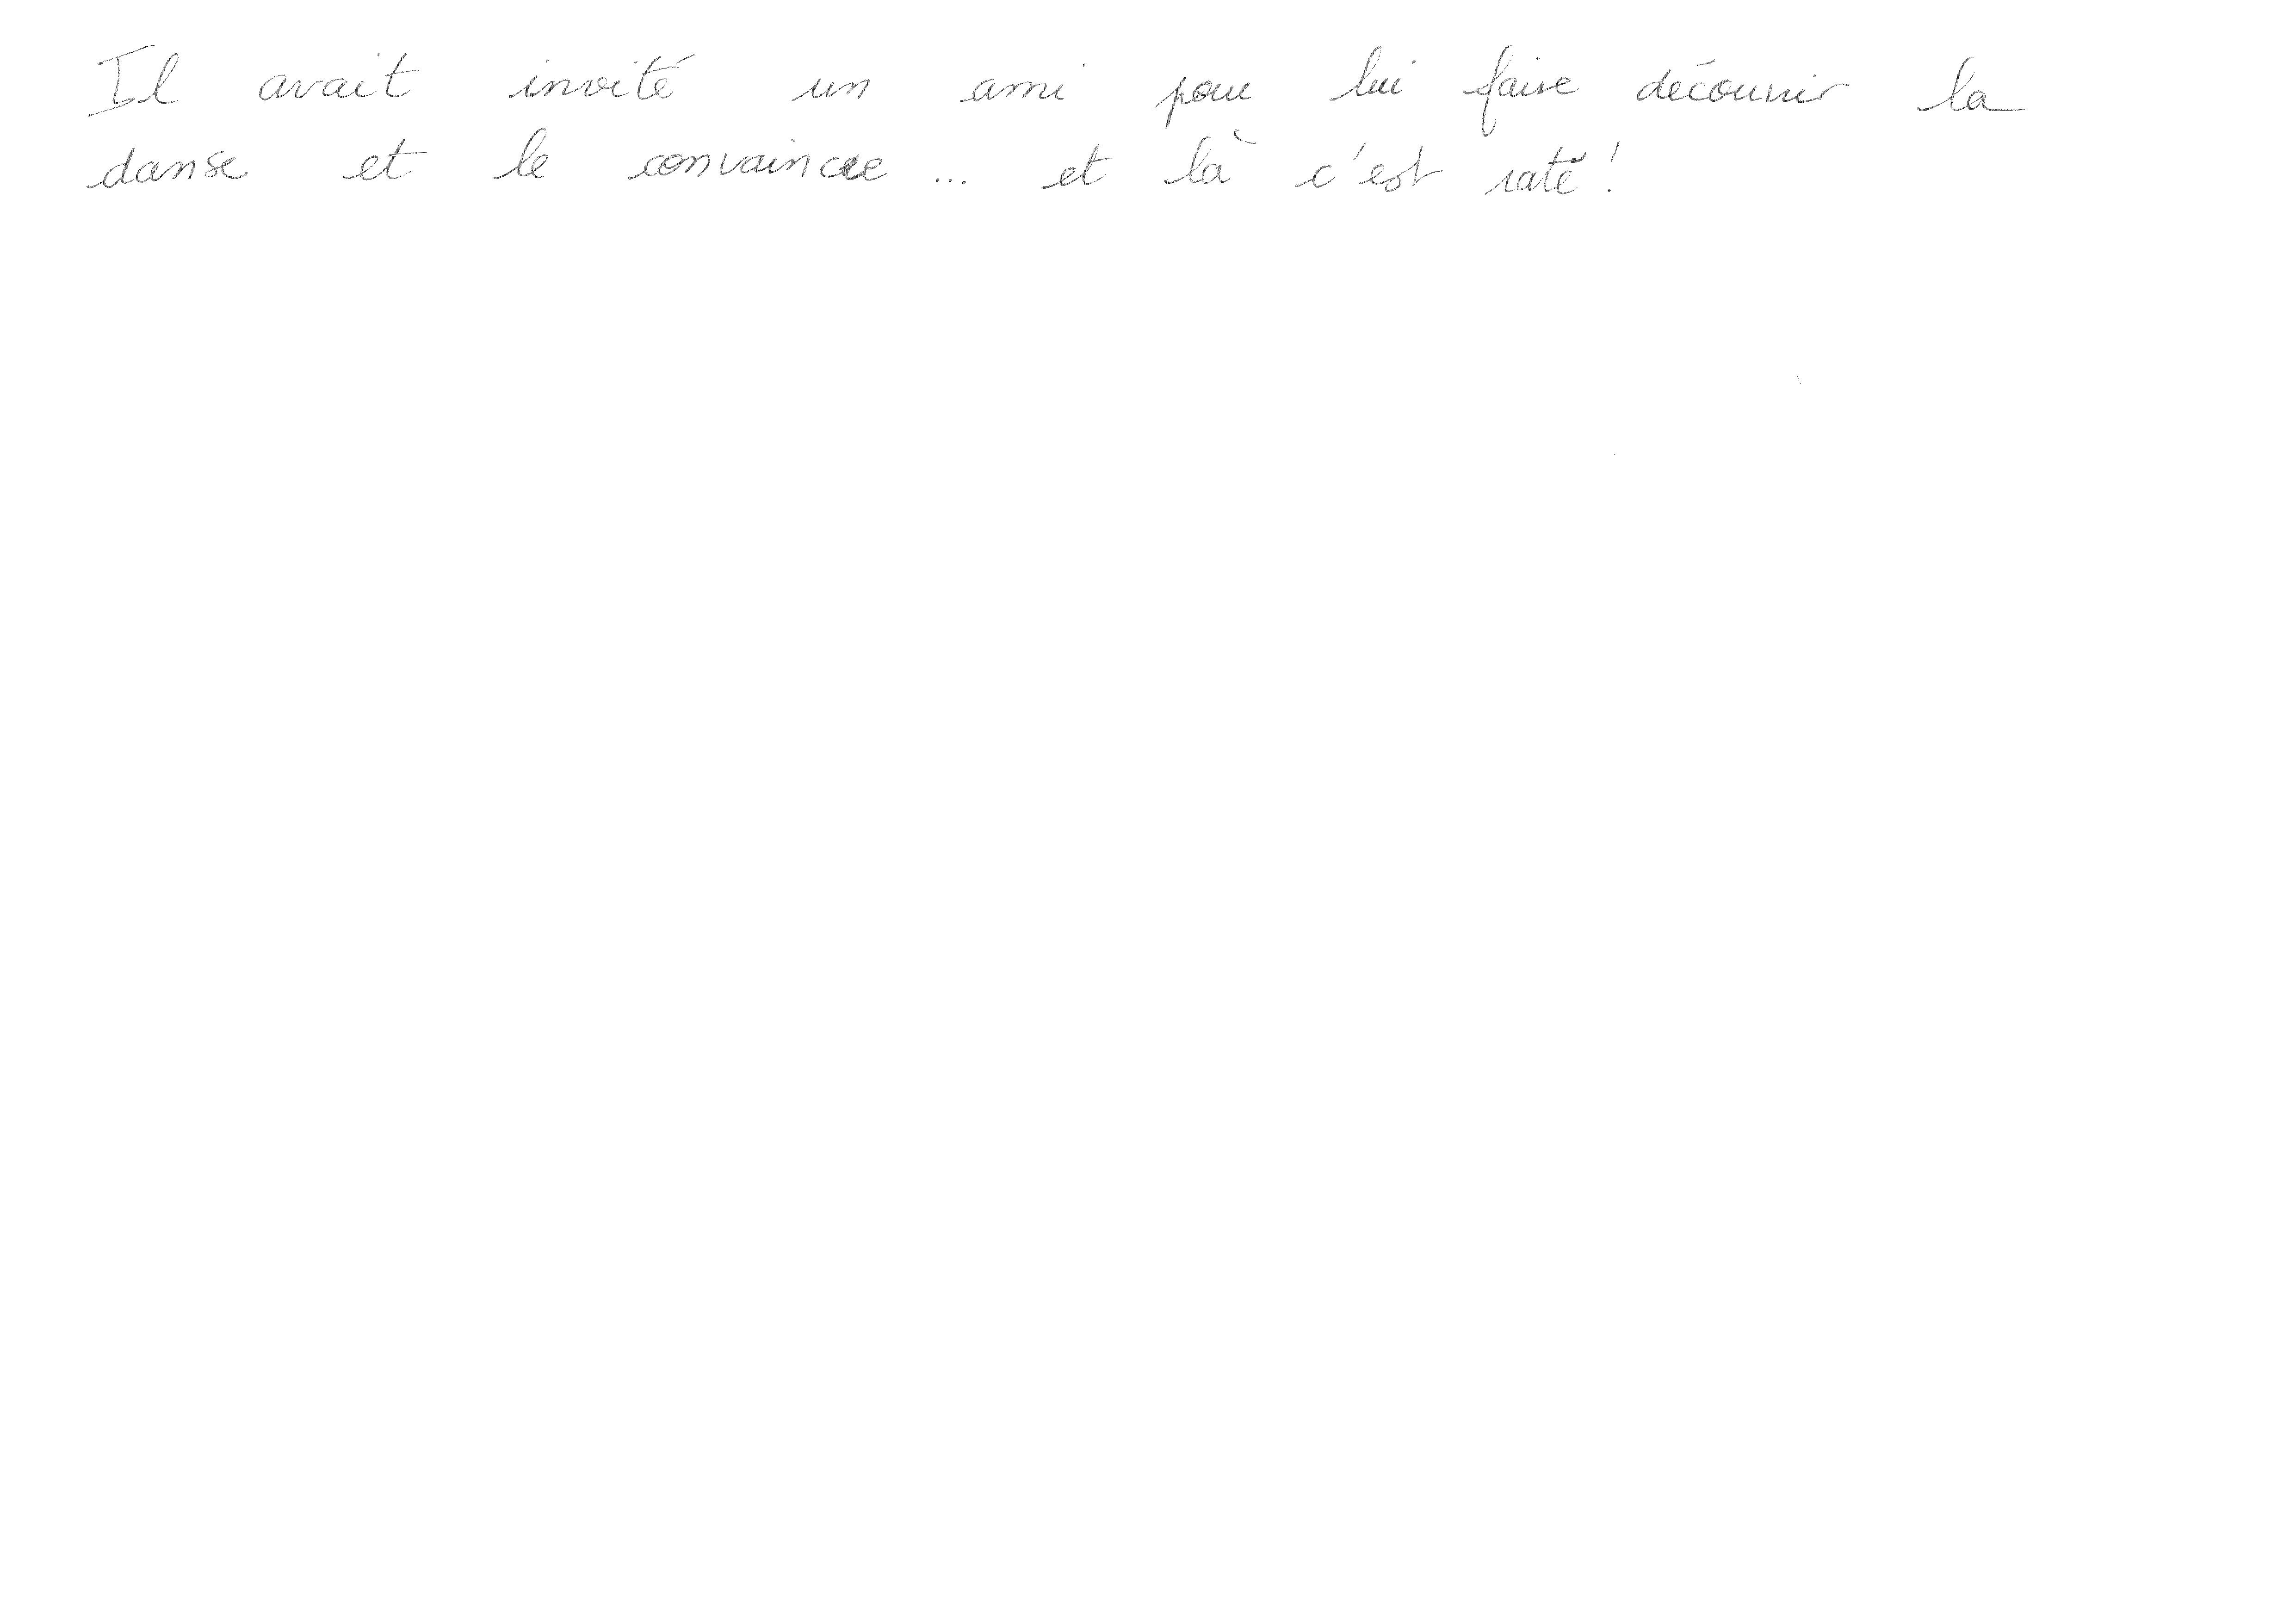 Il avait invité un ami pour lui faire découvrir la
danse et le convaincre ... et là c'est raté !